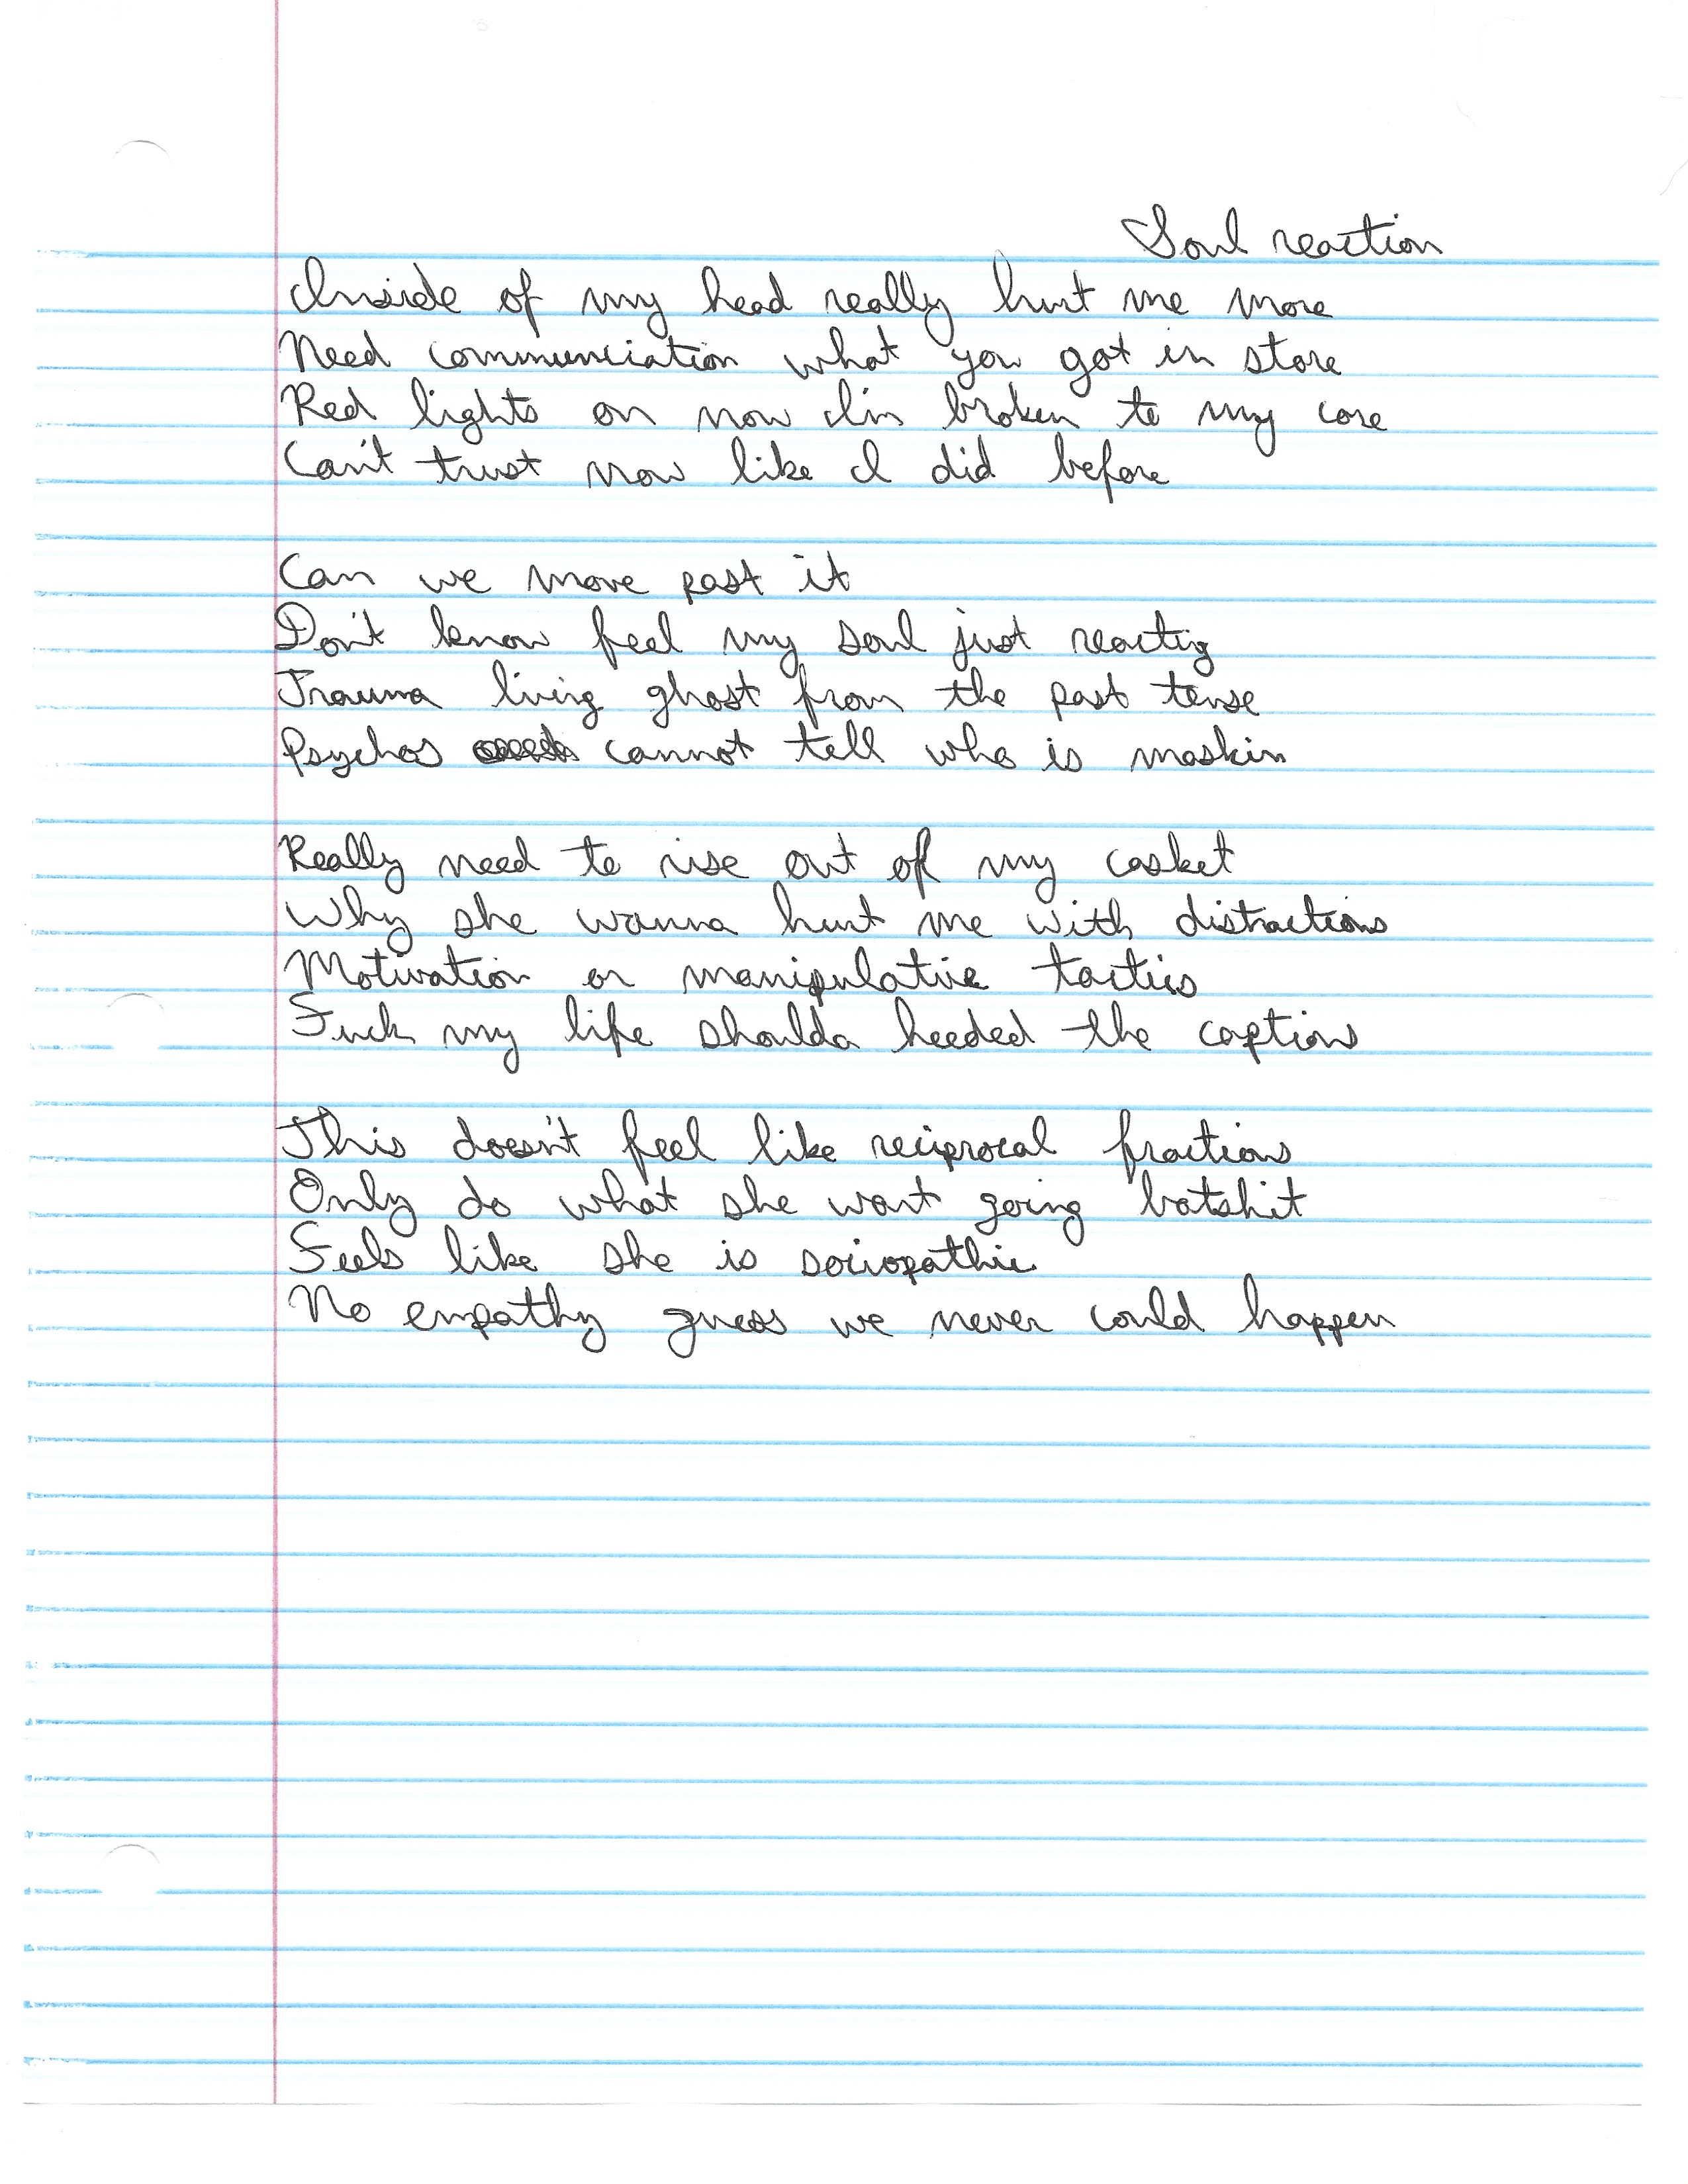 Soul reaction
Inside of my head really hurt me more
Need communciation what you got in store
Red lights on now I'm broken to my core
Can't trust now like I did before
Can we move past it
Don't know feel my soul just reactig
Trauma living ghost from the past tense
Psychos cannot tell who is maskin
Really need to rise out of my casket
Why she wanna hurt me with distractions
Motivation or manipulative tactics
Fuck my life shoulda heeded the captions
This doesn't feel like reciprocal fractions
Only do what she want going batshit
Feels like she is sociopathic
No empathy guess we never could happen